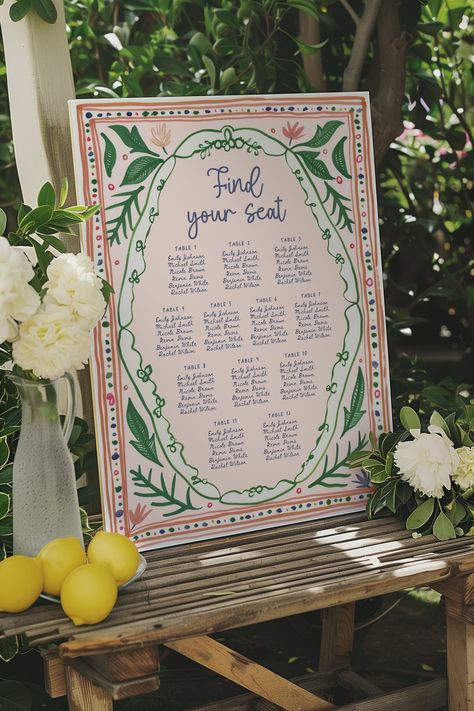 Find
your seat
TABLE 1
Emily Johnson
Michael Smith
Nicole Brown
Kevin Davis
Benjamin White
Rachel Wilson
TABLE 2
Emily Johnson
Michael Smith
Nicole Brown
Kevin Davis
Benjamin White
Rachel Wilson
TABLE 3
Emily Johnson
Michael Smith
Nicole Brown
Kevin Davis
Benjamin White
Rachel Wilson
TABLE 4
Emily Johnson
Michael Smith
Nicole Brown
Kevin Davis
Benjamin White
Rachel Wilson
TABLE 5
Emily Johnson
Michael Smith
Nicole Brown
Kevin Davis
Benjamin White
Rachel Wilson
TABLE 6
Emily Johnson
Michael Smith
Nicole Brown
Kevin Davis
Benjamin White
Rachel Wilson
TABLE 7
Emily Johnson
Michael Smith
Nicole Brown
Kevin Davis
Benjamin White
Rachel Wilson
TABLE 8
Emily Johnson
Michael Smith
Nicole Brown
Kevin Davis
Benjamin White
Rachel Wilson
TABLE 9
Emily Johnson
Michael Smith
Nicole Brown
Kevin Davis
Benjamin White
Rachel Wilson
TABLE 10
Emily Johnson
Michael Smith
Nicole Brown
Kevin Davis
Benjamin White
Rachel Wilson
TABLE 11
Emily Johnson
Michael Smith
Nicole Brown
Kevin Davis
Benjamin White
Rachel Wilson
TABLE 12
Emily Johnson
Michael Smith
Nicole Brown
Kevin Davis
Benjamin White
Rachel Wilson